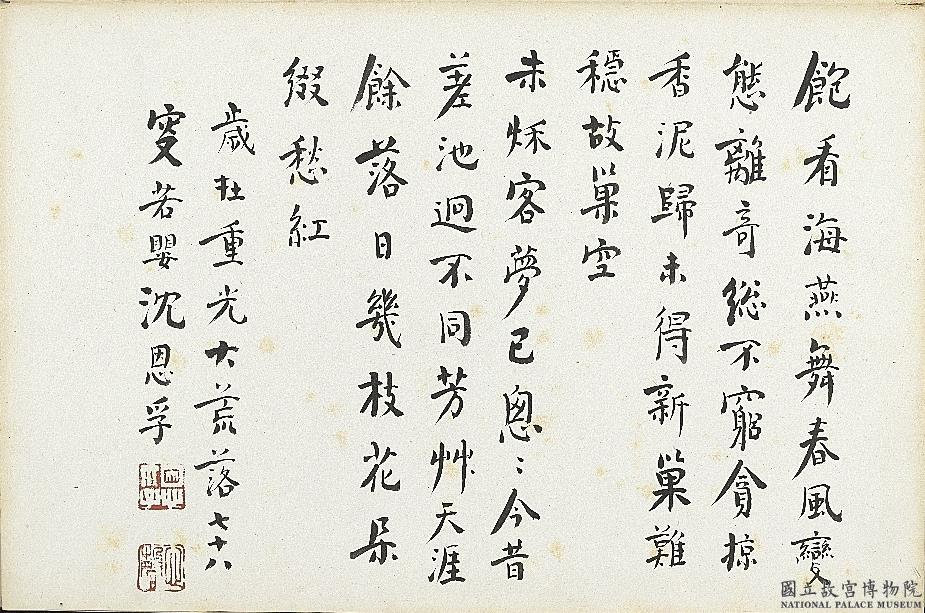 飽看海燕舞春風變
態離奇總不窮貪掠
香泥歸未得新巢難
穩故巢空
未穌客夢已悤〻今昔
差池迥不同芳艸天涯
餘落日幾枝花朵
綴愁紅
歲在重光大荒落七十八
叟若嬰沈恩孚
國立故宮博物院
NATIONAL PALACE MUSEUM